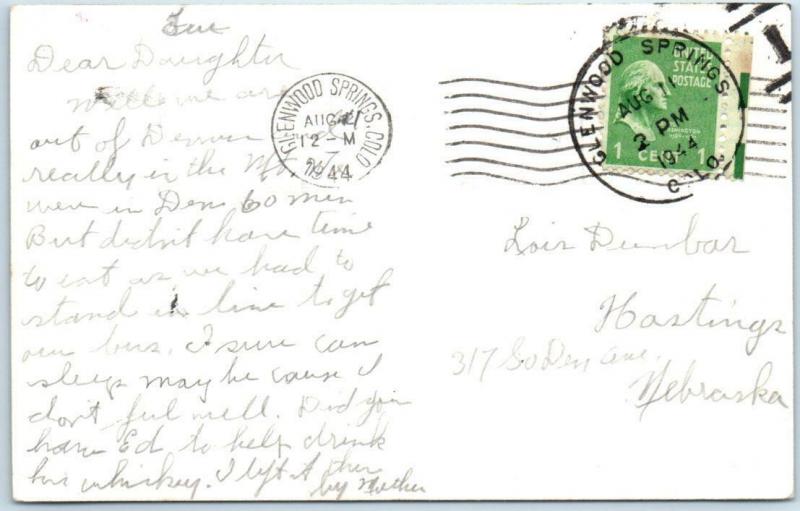 Tue
Dear Daughter
Well we are
out of Denver
really in the
were in Den 60 min
But didn't have time
to eat as we had to
stand in line to get
our bus. I sure can
sleep may be cause I
don't feel well. Did you
have Ed to help drink
his whiskey. I left it there
by Mother
GLENWOOD SPRINGS, COLO
AUG
12-M
1944
GLENWOOD SPRINGS
AUG 11
2 PM
1944
COLO
UNITED
STATES
POSTAGE
WASHINGTON
1 CENT 1
Lois Dunbar
Hastings
317 So Den ave.
Nebraska